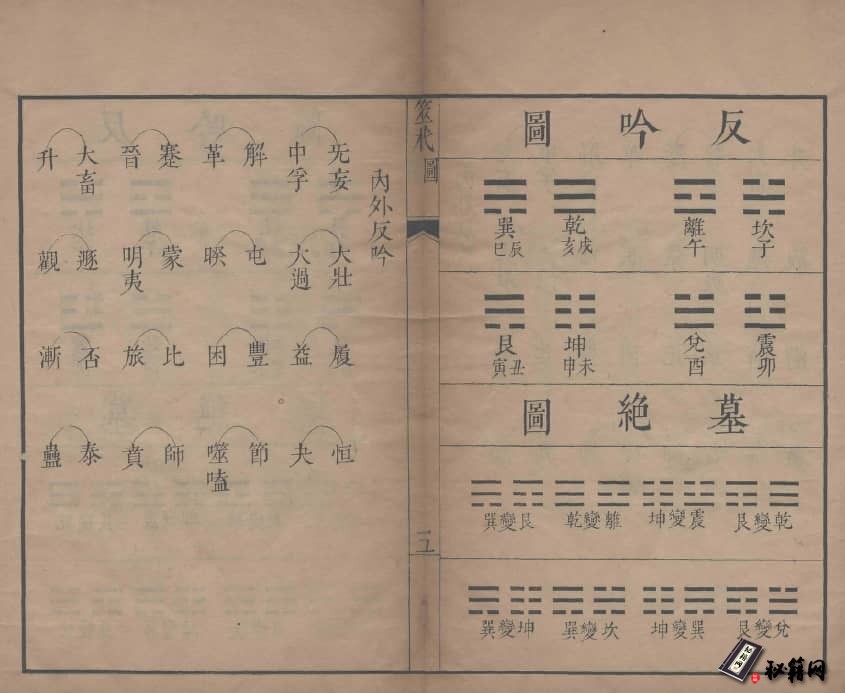 反吟圖
坎子 離午 乾戌亥 巽辰巳
震卯 兌酉 坤未申 艮丑寅
墓絕圖
乾變艮 震變坤 離變乾 艮變巽
兌變艮 巽變坤 坎變巽 坤變巽
圖
內外反吟
旡妄 中孚 解 革 蹇 晉 大畜 升
大壯 大過 屯 睽 蒙 明夷 遯 觀
履 益 豐 困 比 旅 否 漸
恒 夬 節 噬嗑 師 賁 泰 蠱
秘籍网